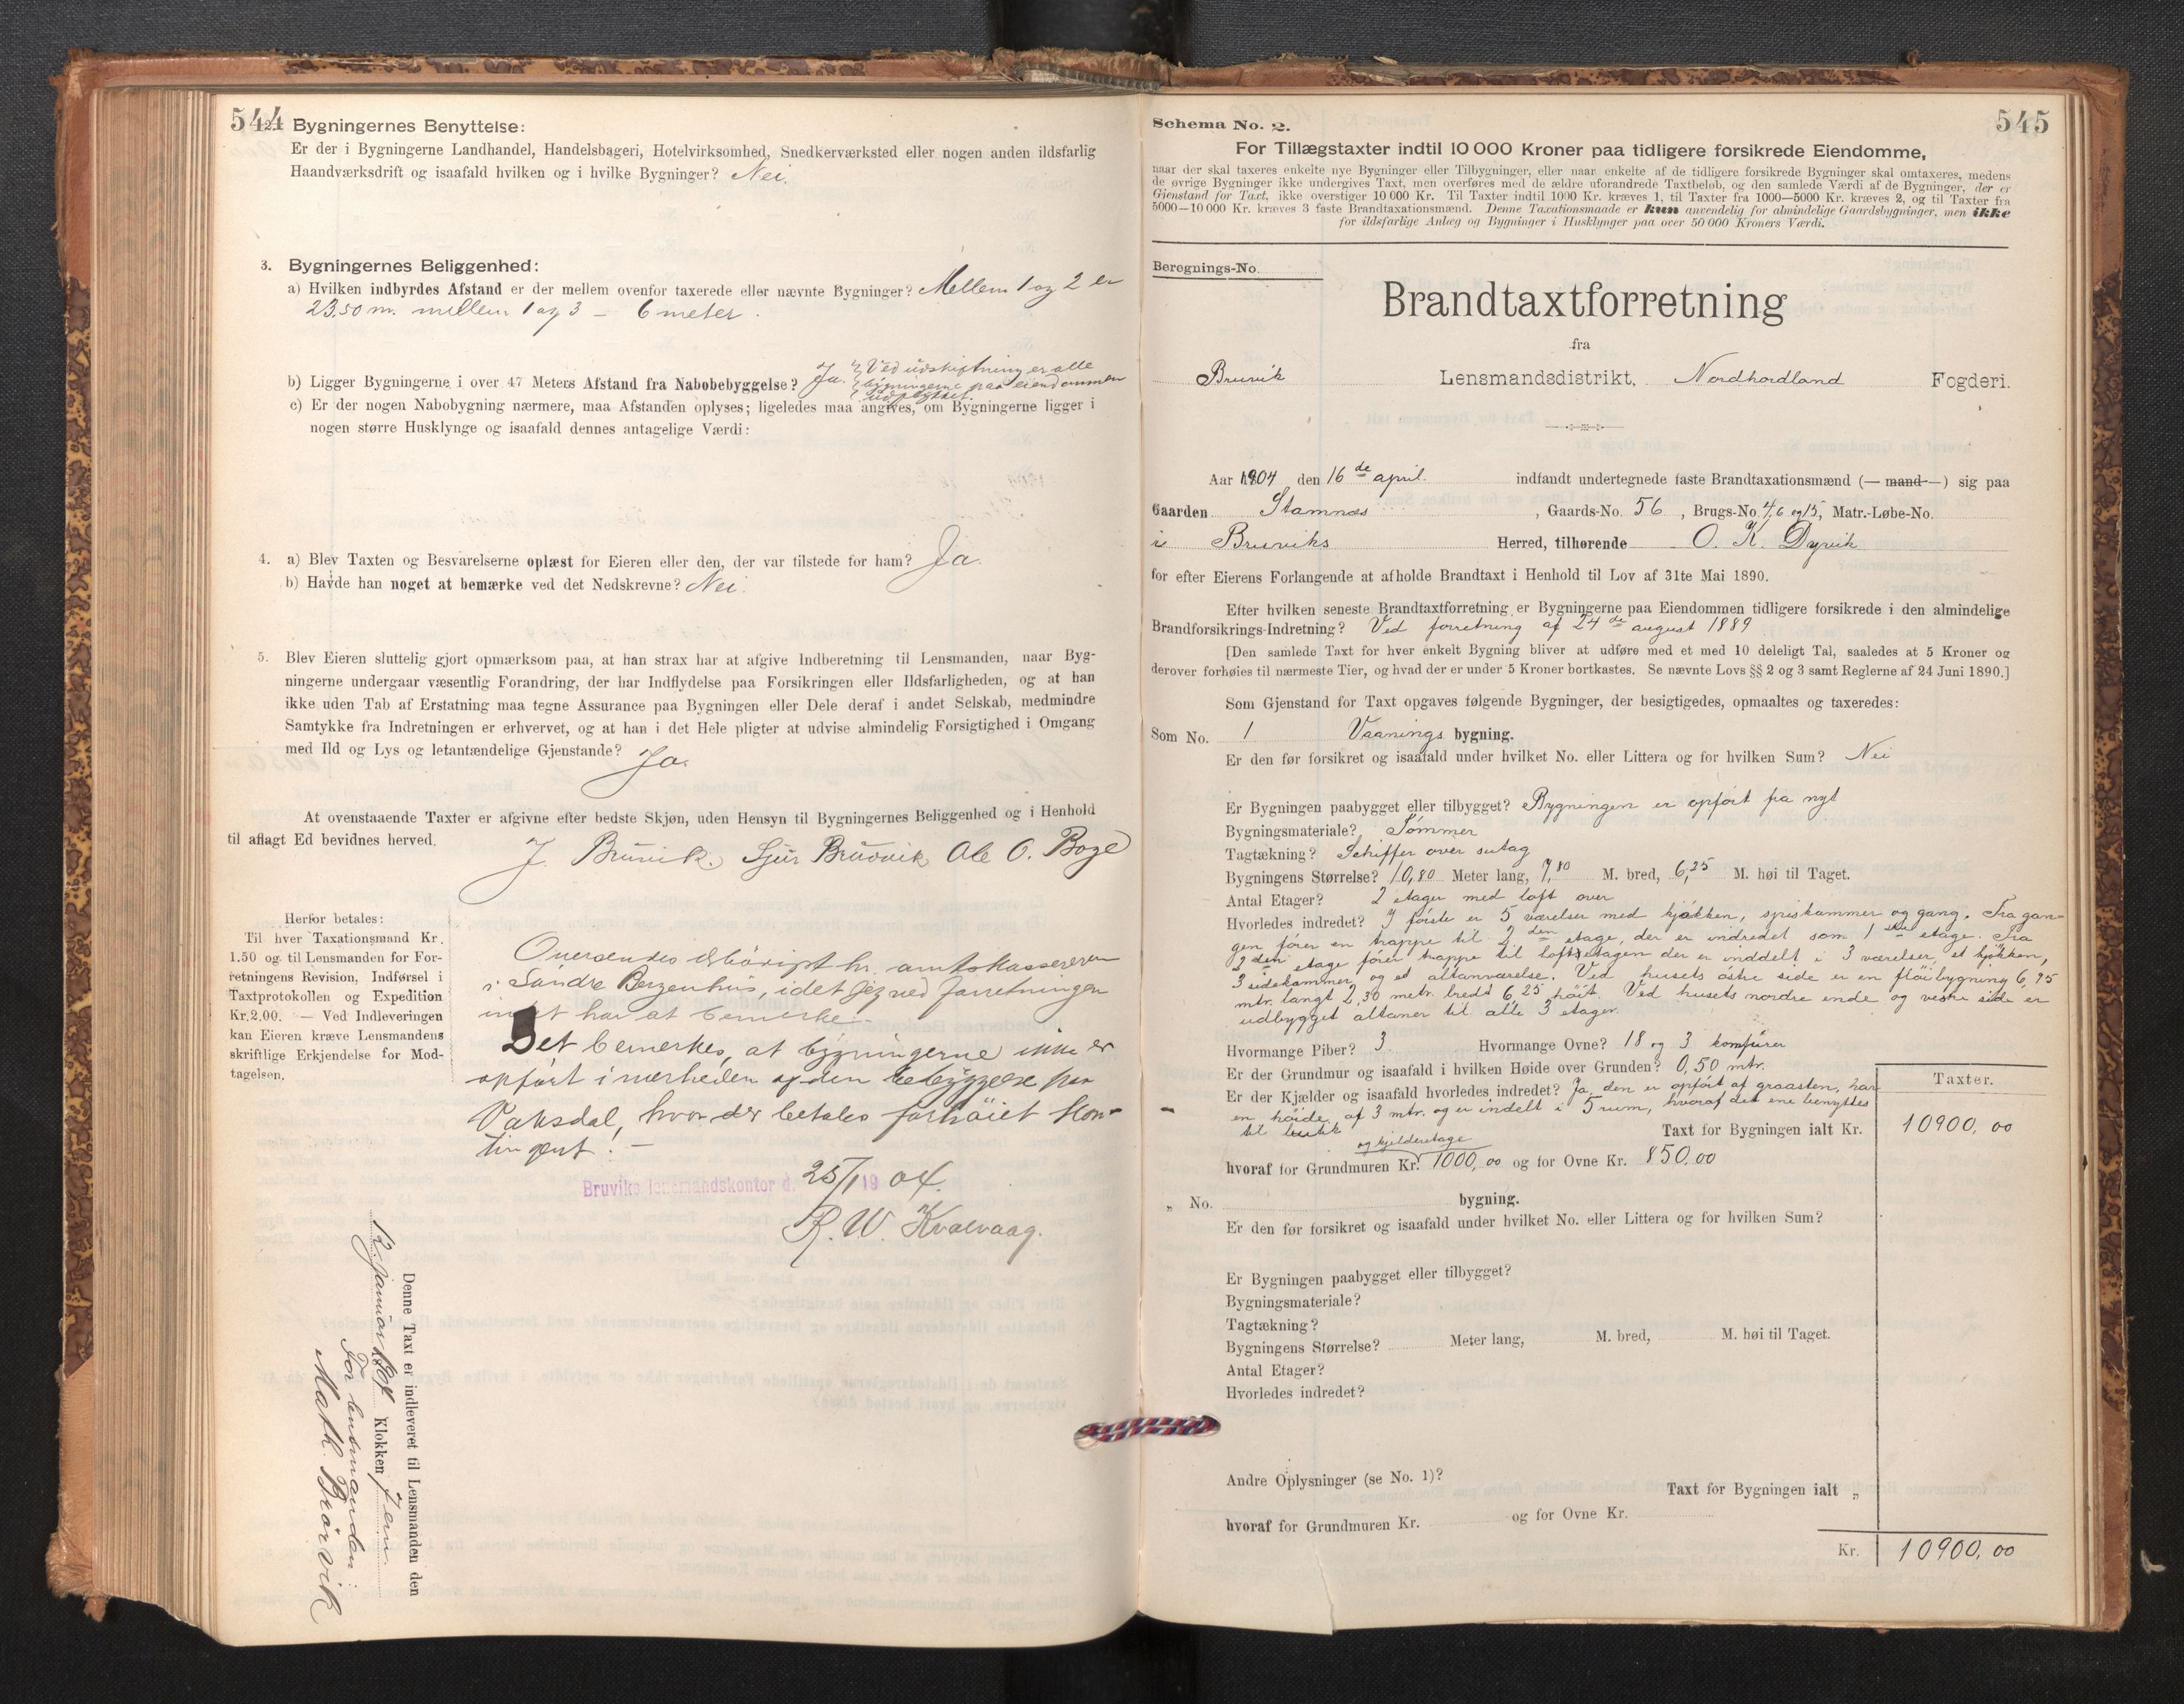 544
2. Bygningernes Benyttelse:
Er der i Bygningerne Landhandel, Handelsbageri, Hotelvirksomhed, Snedkerværksted eller nogen anden ildsfarlig
Haandværksdrift og isaafald hvilken og i hvilke Bygninger? Nei.
3. Bygningernes Beliggenhed:
a) Hvilken indbyrdes Afstand er der mellem ovenfor taxerede eller nævnte Bygninger? Mellem 1 og 2 er
23,50 m. mellem 1 og 3 – 6 meter.
b) Ligger Bygningerne i over 47 Meters Afstand fra Nabobebyggelse? Ja. Ved udskiftning er alle
bygningerne paa eiendommen
udflyttet.
c) Er der nogen Nabobygning nærmere, maa Afstanden oplyses; ligeledes maa angives, om Bygningerne ligger i
nogen større Husklynge og isaafald dennes antagelige Værdi:
4. a) Blev Taxten og Besvarelserne oplæst for Eieren eller den, der var tilstede for ham? Ja.
b) Havde han noget at bemærke ved det Nedskrevne? Nei.
5. Blev Eieren sluttelig gjort opmærksom paa, at han strax har at afgive Indberetning til Lensmanden, naar Byg-
ningerne undergaar væsentlig Forandring, der har Indflydelse paa Forsikringen eller Ildsfarligheden, og at han
ikke uden Tab af Erstatning maa tegne Assurance paa Bygningen eller Dele deraf i andet Selskab, medmindre
Samtykke fra Indretningen er erhvervet, og at han i det Hele pligter at udvise almindelig Forsigtighed i Omgang
med Ild og Lys og letantændelige Gjenstande? Ja.
At ovenstaaende Taxter er afgivne efter bedste Skjøn, uden Hensyn til Bygningernes Beliggenhed og i Henhold
til aflagt Ed bevidnes herved.
J. Bruvik. Sjur Bruvik Ole O. Boge
Herfor betales:
Til hver Taxationsmand Kr.
1.50 og til Lensmanden for For-
retningens Revision, Indførsel i
Taxtprotokollen og Expedition
Kr. 2.00. — Ved Indleveringen
kan Eieren kræve Lensmandens
skriftlige Erkjendelse for Mod-
tagelsen.
Oversendes ærbödigst hr. amtskassereren
i Söndre Bergenhus, idet jeg ved forretningen
intet har at bemerke. –
Det bemerkes, at bygningerne ikke er
opfört i nærheden af den bebyggelse paa
Vaksdal, hvor der betales forhöiet kon-
tingent! –
Bruviks lensmandskontor d. 25/1 1904.
R. W. Kvalvaag.
Denne Taxt er indleveret til Lensmanden den
12. januar 1904 Klokken 7 em.
For lensmanden:
Math. Brörvik
545
Schema No. 2.
For Tillægstaxter indtil 10 000 Kroner paa tidligere forsikrede Eiendomme,
naar der skal taxeres enkelte nye Bygninger eller Tilbygninger, eller naar enkelte af de tidligere forsikrede Bygninger skal omtaxeres, medens
de øvrige Bygninger ikke undergives Taxt, men overføres med de ældre uforandrede Taxtbeløb, og den samlede Værdi af de Bygninger, der er
Gjenstand for Taxt, ikke overstiger 10 000 Kr. Til Taxter indtil 1000 Kr. kræves 1, til Taxter fra 1000—5000 Kr. kræves 2, og til Taxter fra
5000—10 000 Kr. kræves 3 faste Brandtaxationsmænd. Denne Taxationsmaade er kun anvendelig for almindelige Gaardsbygninger, men ikke
for ildsfarlige Anlæg og Bygninger i Husklynger paa over 50 000 Kroners Værdi.
Beregnings-No.
Brandtaxtforretning
fra
Bruvik Lensmandsdistrikt, Nordhordland Fogderi.
Aar 1904 den 16de april. indfandt undertegnede faste Brandtaxationsmænd (— mand —) sig paa
Gaarden Stamnes, Gaards-No. 56, Brugs-No. 4,6 og 15, Matr.-Løbe-No.
i Bruviks Herred, tilhørende O. K. Dyvik
for efter Eierens Forlangende at afholde Brandtaxt i Henhold til Lov af 31te Mai 1890.
Efter hvilken seneste Brandtaxtforretning er Bygningerne paa Eiendommen tidligere forsikrede i den almindelige
Brandforsikrings-Indretning? Ved forretning af 24de august 1889
[Den samlede Taxt for hver enkelt Bygning bliver at udføre med et med 10 deleligt Tal, saaledes at 5 Kroner og
derover forhøies til nærmeste Tier, og hvad der er under 5 Kroner bortkastes. Se nævnte Lovs §§ 2 og 3 samt Reglerne af 24 Juni 1890.]
Som Gjenstand for Taxt opgaves følgende Bygninger, der besigtigedes, opmaaltes og taxeredes:
Som No. 1 Vaanings bygning.
Er den før forsikret og isaafald under hvilket No. eller Littera og for hvilken Sum? Nei
Er Bygningen paabygget eller tilbygget? Bygningen er opført fra nyt
Bygningsmateriale? Tømmer
Tagtækning? Schiffer over sutag
Bygningens Størrelse? 10,80 Meter lang, 7,80 M. bred, 6,25 M. høi til Taget.
Antal Etager? 2 etager med loft over
Hvorledes indredet? I første er 5 værelser med kjøkken, spiskammer og gang. Fra gan-
gen fører en trappe til 2den etage, der er indredet som 1ste etage. Fra
2den etage fører trappe til loftsetagen der er inddelt i 3 værelser, et kjøkken,
3 sidekammer og et altanværelse. Ved husets østre side er en fløibygning 6,95
mtr. langt 2,30 metr. bredt 6,25 høit. Ved husets nordre ende og vestre side er
udbygget altaner til alle 3 etager.
Hvormange Piber? 3 Hvormange Ovne? 18 og 3 komfürer
Er der Grundmur og isaafald i hvilken Høide over Grunden? 0,50 mtr.
Er der Kjælder og isaafald hvorledes indredet? Ja, den er opført af graasten, har
en høide af 3 mtr. og er indelt i 5 rum, hvoraf det ene benyttes
til butik
Taxter.
Taxt for Bygningen ialt Kr. 10900,00
og kjelderetage
hvoraf for Grundmuren Kr. 1000,00 og for Ovne Kr. 850,00
„ No. bygning.
Er den før forsikret og isaafald under hvilket No. eller Littera og for hvilken Sum?
Er Bygningen paabygget eller tilbygget?
Bygningsmateriale?
Tagtækning?
Bygningens Størrelse? Meter lang, M. bred, M. høi til Taget.
Antal Etager?
Hvorledes indredet?
Andre Oplysninger (se No. 1)?
Taxt for Bygningen ialt „
hvoraf for Grundmuren Kr. og for Ovne Kr.
Kr. 10900,00